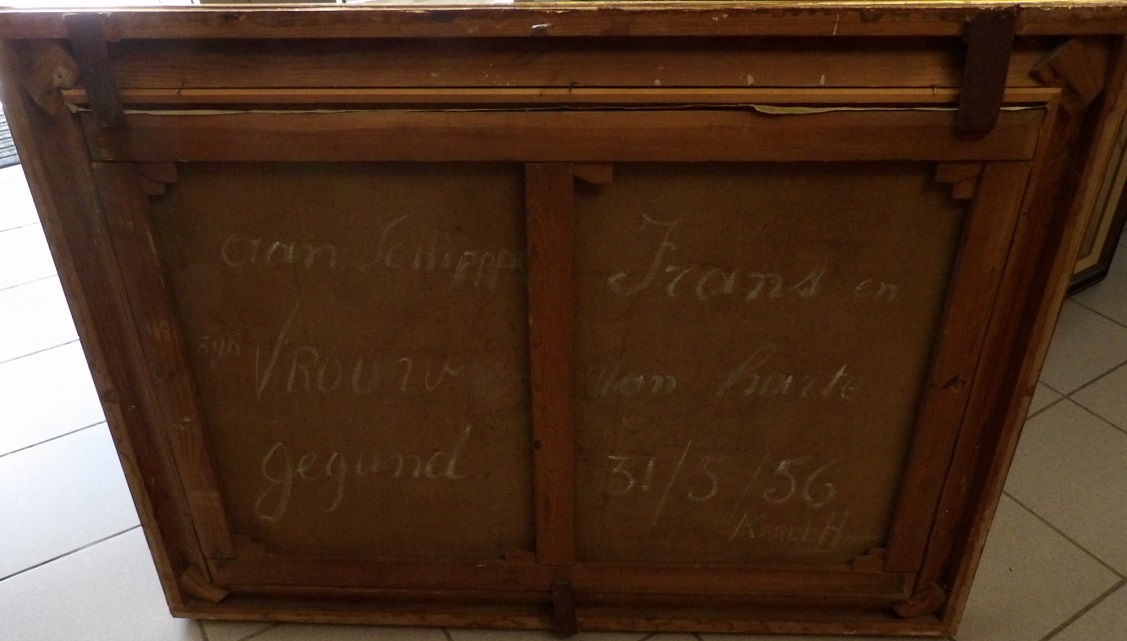 aan Schipper Frans en
zijn VROUW van harte
gegund 31/5/56
KAREL H